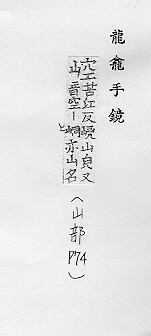 龍龕手鏡
苦江反山皃又
音空丨峒亦山名
(山部 P74)